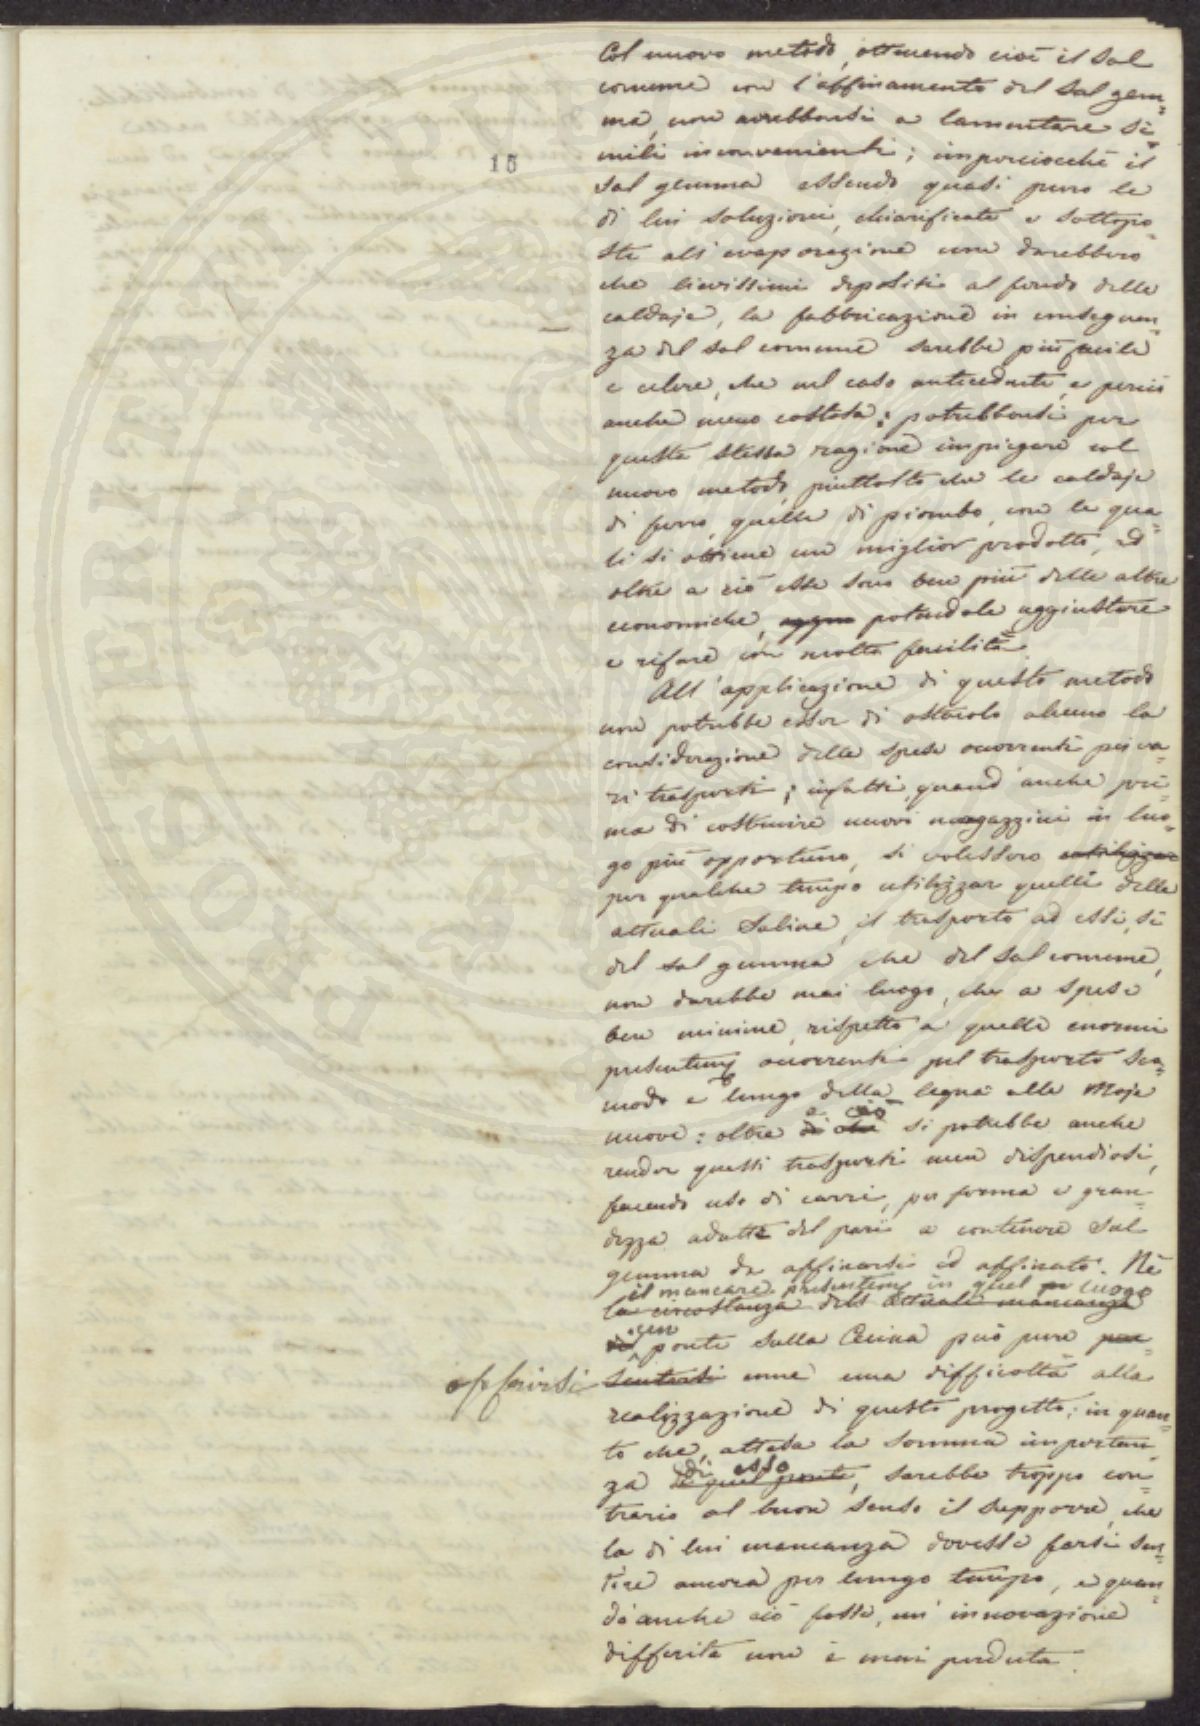 15
Col nuovo metodo, ottenendo cioè il sal
comune con l'affinamento del sal gem=
ma, non avrebbonsi a lamentare si=
mili inconvenienti; imperciocchè il
sal gemma essendo quasi puro le
di lui soluzioni, chiarificate e sottopo=
ste all'evaporazione non darebbero
che lievissimi depositi al fondo delle
caldaje, la fabbricazione in conseguen=
za del sal comune sarebbe più facile
e celere, che nel caso antecedente, e perciò
anche meno costosa; potrebbonsi per
questa stessa ragione impiegare col
nuovo metodo, piuttosto che le caldaje
di ferro, quelle di piombo, con le qua=
li si ottiene un miglior prodotto, ed
oltre a ciò esse sono ben più delle altre
economiche, potendole aggiustare
e rifare con molta facilità.
All'applicazione di questo metodo
non potrebbe esser di ostacolo alcuno la
considerazione delle spese occorrenti pei va=
ri trasporti; infatti, quand'anche pri=
ma di costruire nuovi magazzini in luo=
go più opportuno, si volessero utilizzar
per qualche tempo utilizzar quelli delle
attuali Saline, il trasporto ad essi, sì
del sal gemma che del sal comune,
non darebbe mai luogo, che a spese
ben minime, rispetto a quelle enormi
presentem.e occorrenti pel trasporto sco=
modo e lungo della legna alle Moje
a ciò
nuove: oltre di che si potrebbe anche
render questi trasporti men dispendiosi,
facendo uso di carri, per forma e gran=
dezza adatti del pari a contenere sal
gemma da affinarsi ed affinato. Nè
il mancare presentem.e in quel luogo
la circostanza dell'attuale mancanza
un
di ponte sulla Cecina può pure pre=
offrirsi sentarsi come una difficoltà alla
realizzazione di questo progetto; in quan=
to che, attesa la somma importan=
di esso
za di quel ponte, sarebbe troppo con=
trario al buon senso il supporre, che
la di lui mancanza dovesse farsi sen=
tire ancora per lungo tempo, e quan=
d'anche ciò fosse, un'innovazione
differita non è mai perduta.